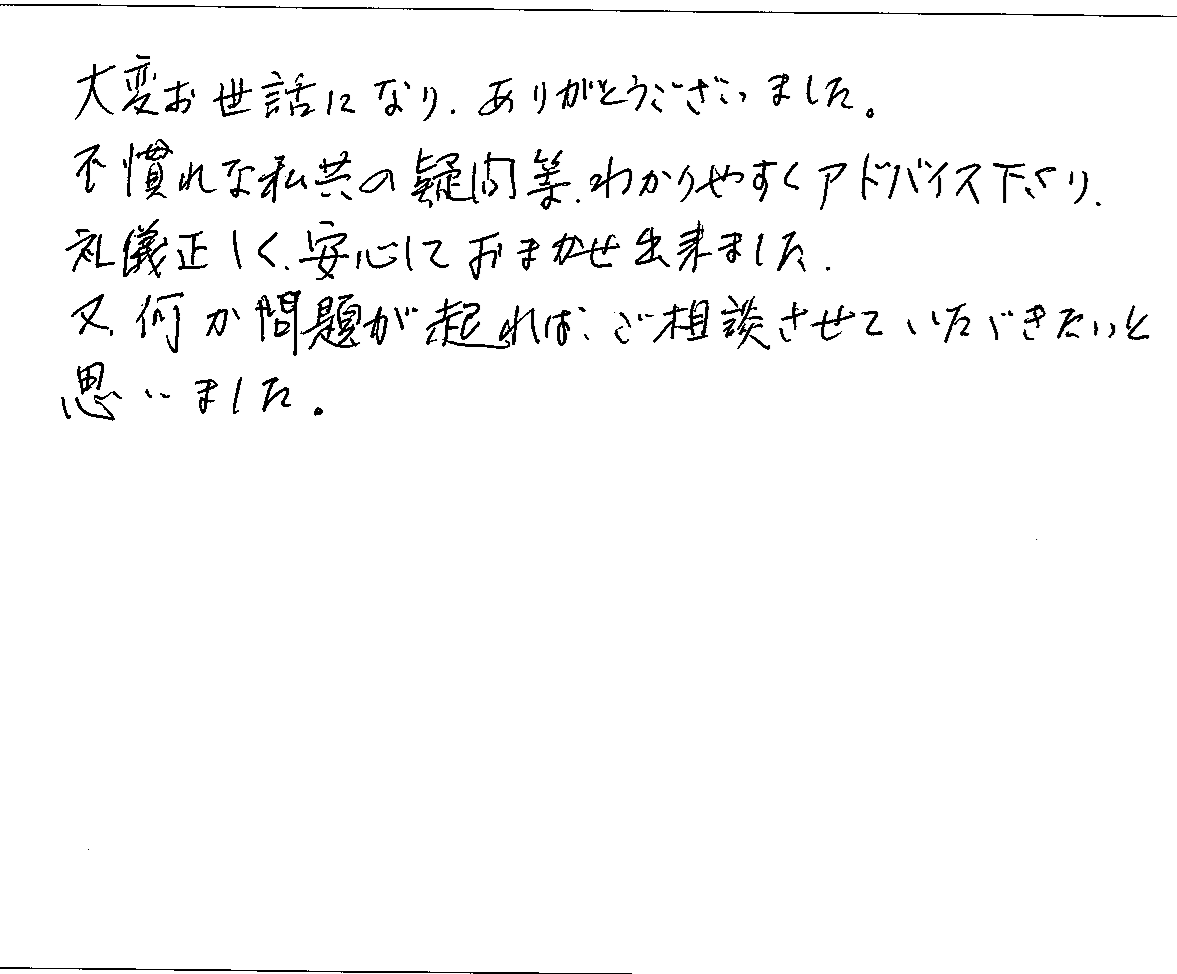 大変お世話になり、ありがとうございました。
不慣れな私共の疑問等、わかりやすくアドバイス下さり、
礼儀正しく、安心しておまかせ出来ました。
又、何か問題が起れば、ご相談させていただきたいと
思いました。